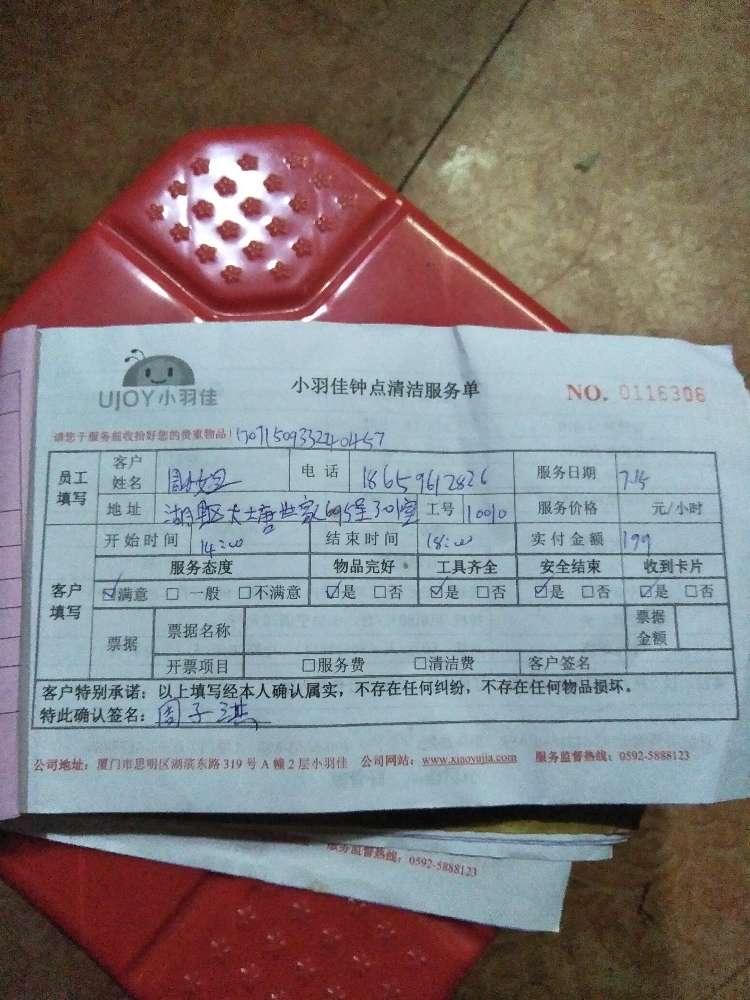 UJOY小羽佳
小羽佳钟点清洁服务单
NO. 0116308
请您于服务前收拾好您的贵重物品!
员工填写 客户姓名 周 电话 18659612826 服务日期 7.15
地址 湖 区大唐世家 301室 工号 10010 服务价格 元/小时
开始时间 14:00 结束时间 18:00 实付金额 199
客户填写 服务态度 物品完好 工具齐全 安全结束 收到卡片
☑满意 □一般 □不满意 ☑是 □否 ☑是 □否 ☑是 □否 ☑是 □否
票据 票据名称 票据金额
开票项目 □服务费 □清洁费 客户签名
客户特别承诺:以上填写经本人确认属实,不存在任何纠纷,不存在任何物品损坏。
特此确认签名:周子琪
公司地址:厦门市思明区湖滨东路 319 号 A 幢 2 层小羽佳 公司网站:www.xiaoyujia.com 服务监督热线:0592-5888123
服务监督热线:0592-5888123